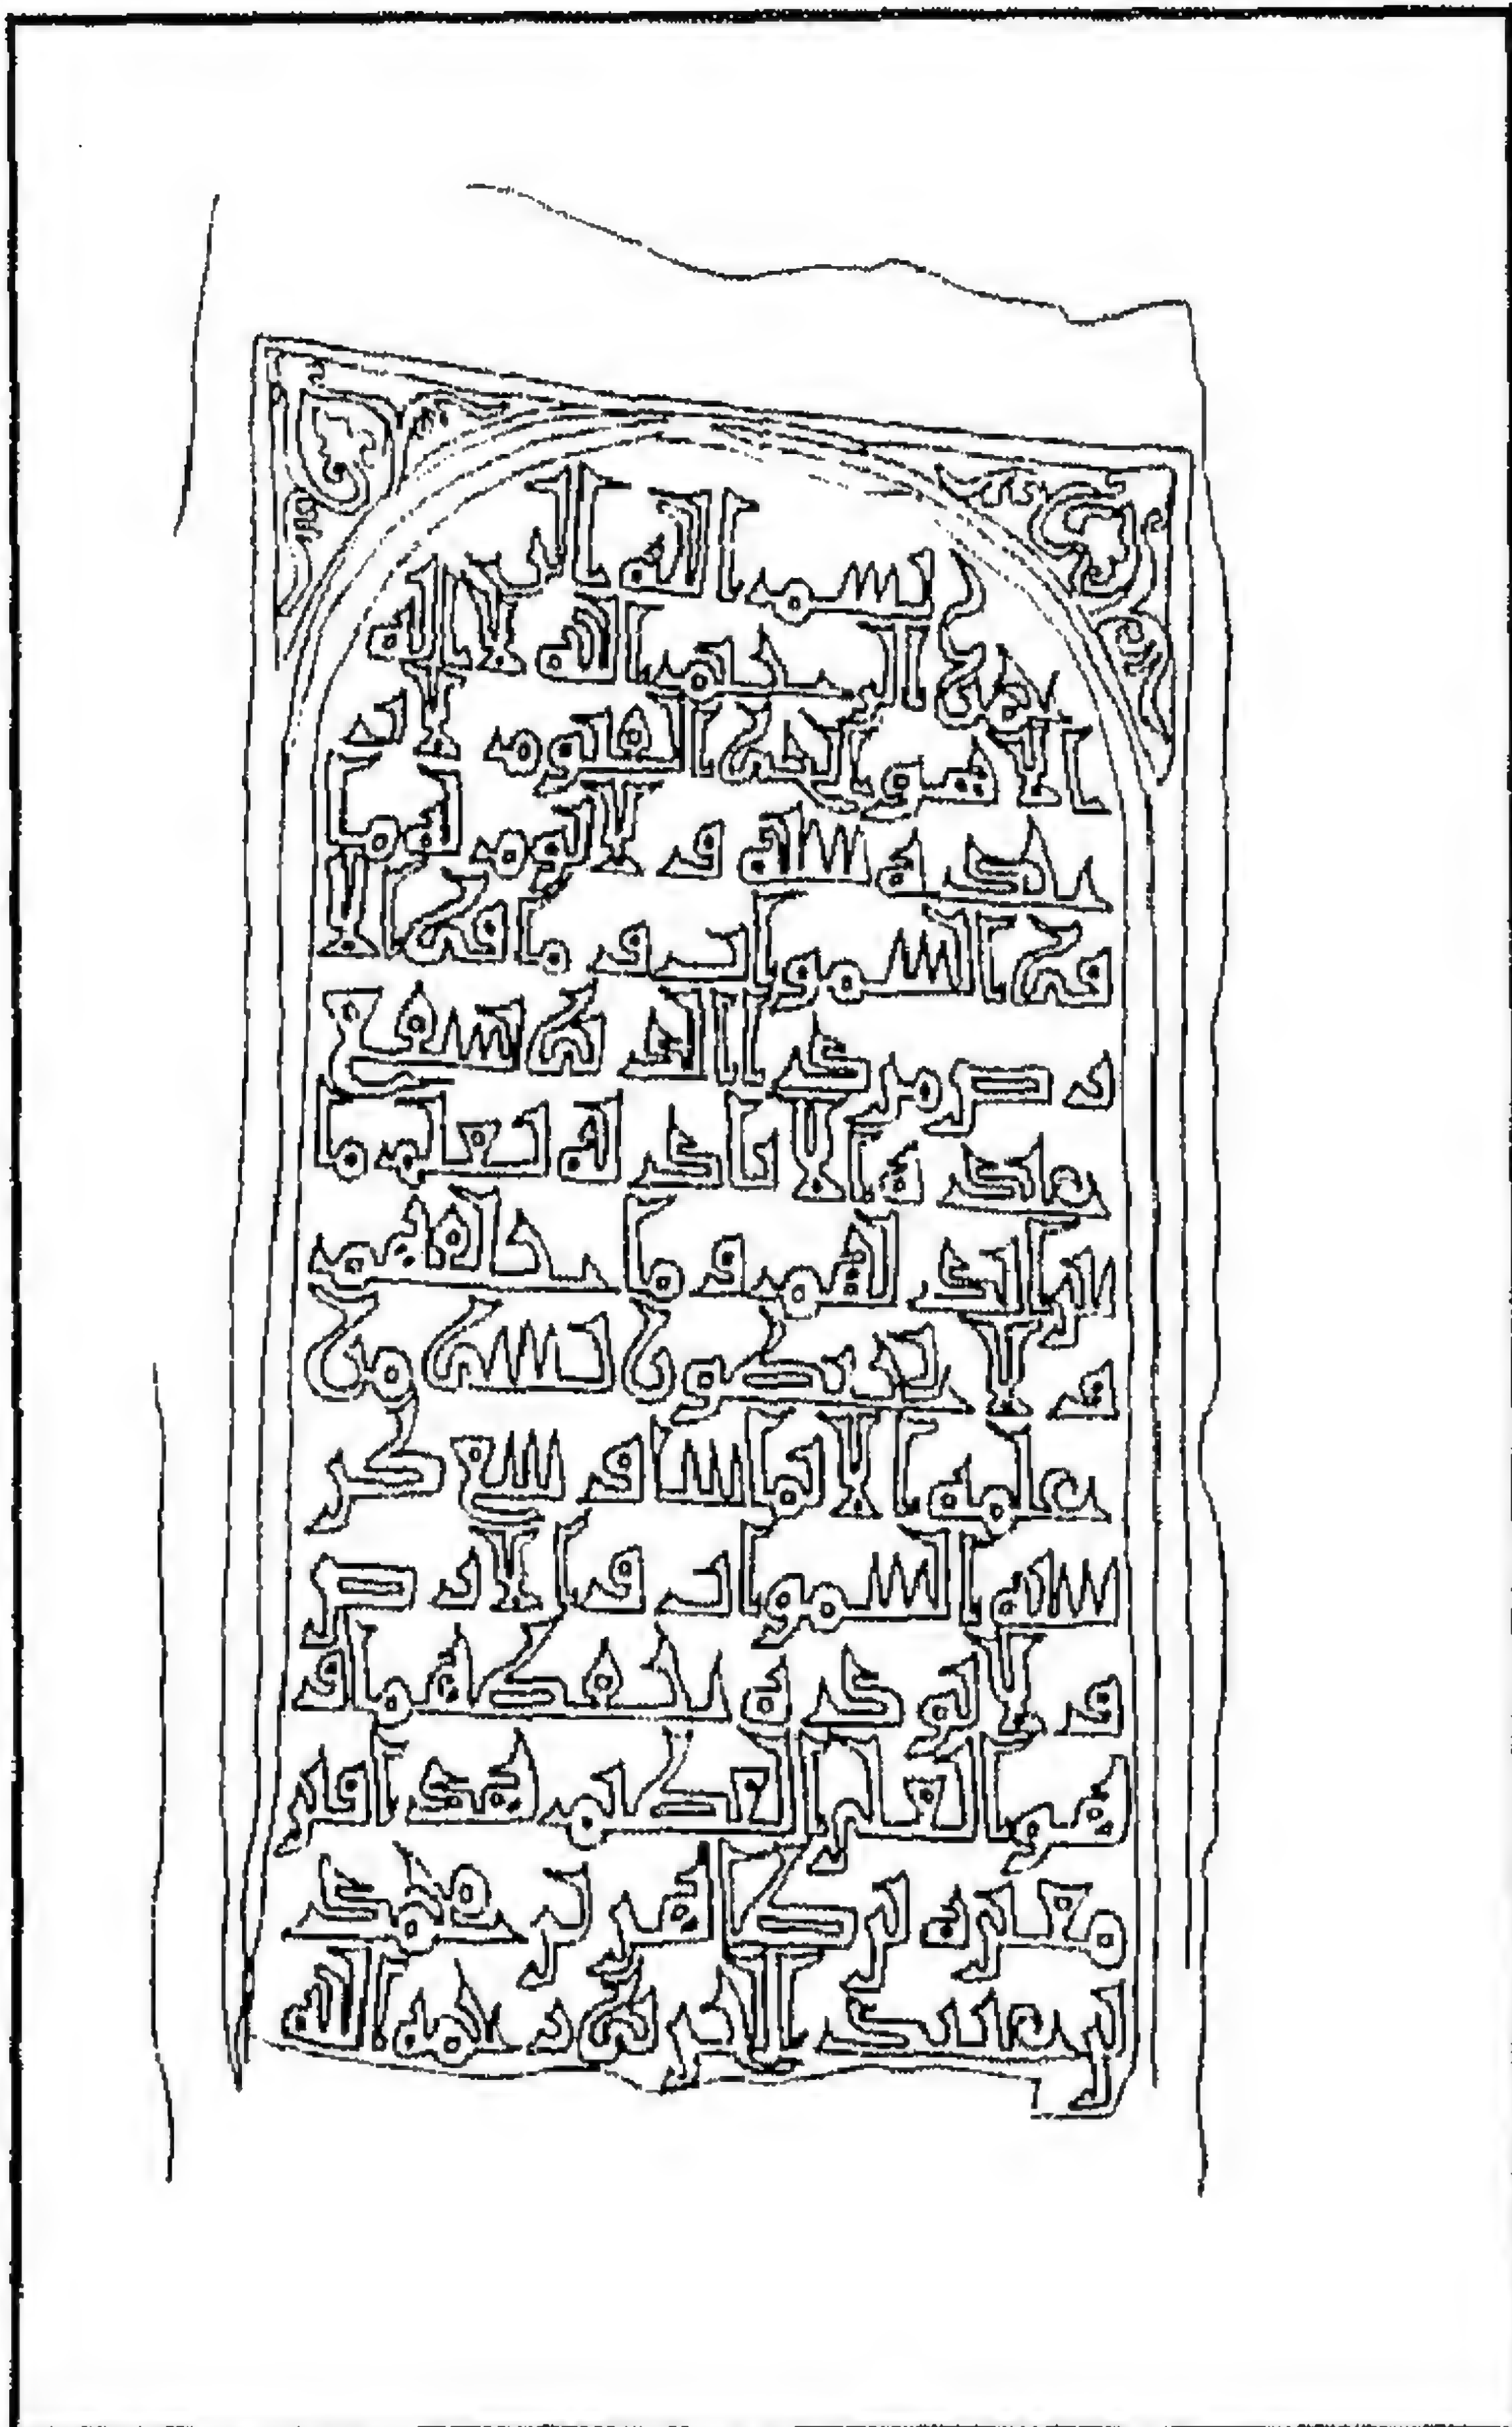 بسم الله الر
حمن الرحيم الله لا اله
الا هو الحي القيوم لا تا
خذه سنة و لا نوم له ما
في السموات و ما في الا
رض من ذا الذي يشفع
عنده الا باذنه يعلم ما
بين ايديهم و ما خلفهم
و لا يحيطون بشي من
علمه الا بما شا وسع كر
سيه السموات و الارض
و لا يوده حفظهما و
هو العلي العظيم هذا قبر
بن طاهر بن
بن رحمه الله